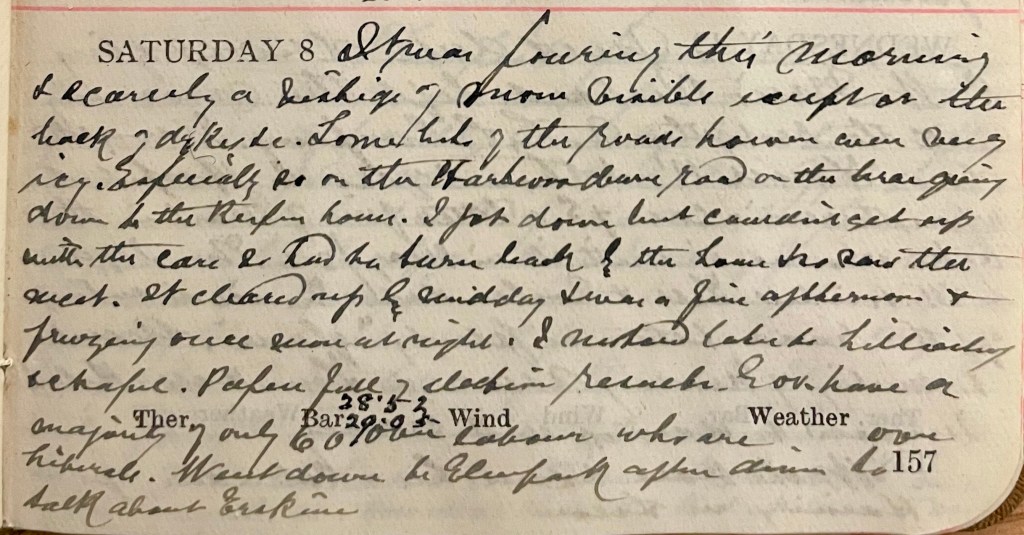 SATURDAY 8 It was pouring this morning
& scarcely a vestige of snow visible except at the
back of dykes &c. Some bits of the roads however were very
icy. Especially so on the Harburn road on the brae going
down to the house. I got down but couldn't get up
with the car so had to turn back to the house & so saw the
meet. It cleared up by midday & was a fine afternoon &
freezing once more at night. I
. Papers full of election results. Gov. have a
Ther. Bar. 28.52 29.03 Wind Weather
majority of only 60 over Labour who are over
Liberals. Went down to Elmpark after dinner to
157
talk about Erskine